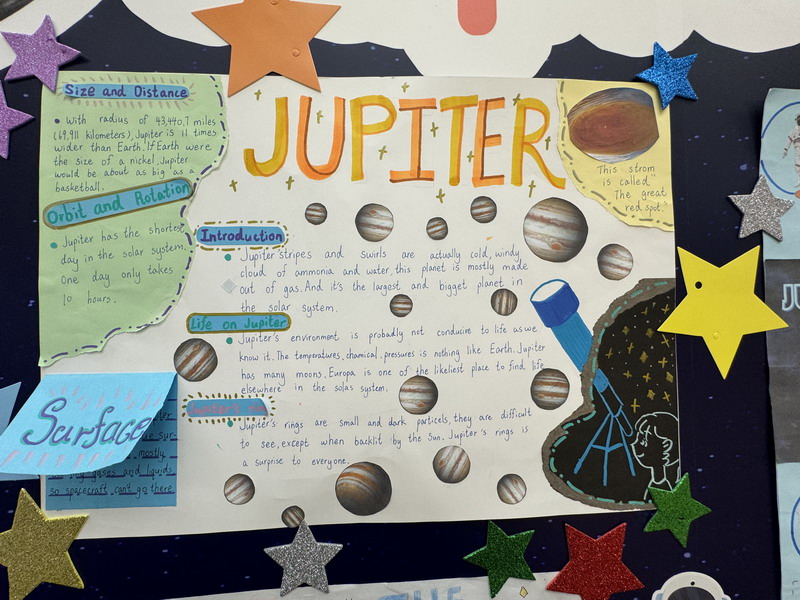 JUPITER
Size and Distance
With radius of 43,440.7 miles
(69,911 kilometers), Jupiter is 11 times
wider than Earth. If Earth were
the size of a nickel, Jupiter
would be about as big as a
basketball.
Orbit and Rotation
Jupiter has the shortest
day in the solar system.
One day only takes
10 hours.
Surface
mostly
gases and liquids
so spacecraft can't go there
Introduction
Jupiter stripes and swirls are actually cold, windy
cloud of ammonia and water, this planet is mostly made
out of gas. And it's the largest and bigget planet in
the solar system.
Life on Jupiter
Jupiter's environment is probadly not conducive to life as we
know it. The temperatures, chamical, pressures is nothing like Earth. Jupiter
has many moons. Europa is one of the likeliest place to find life
elsewhere in the solas system.
Jupiter's rings are small and dark particels, they are difficult
to see, except when backlit by the Sun. Jupiter's rings is
a surprise to everyone.
This strom
is called "
The great
red spot."
THE